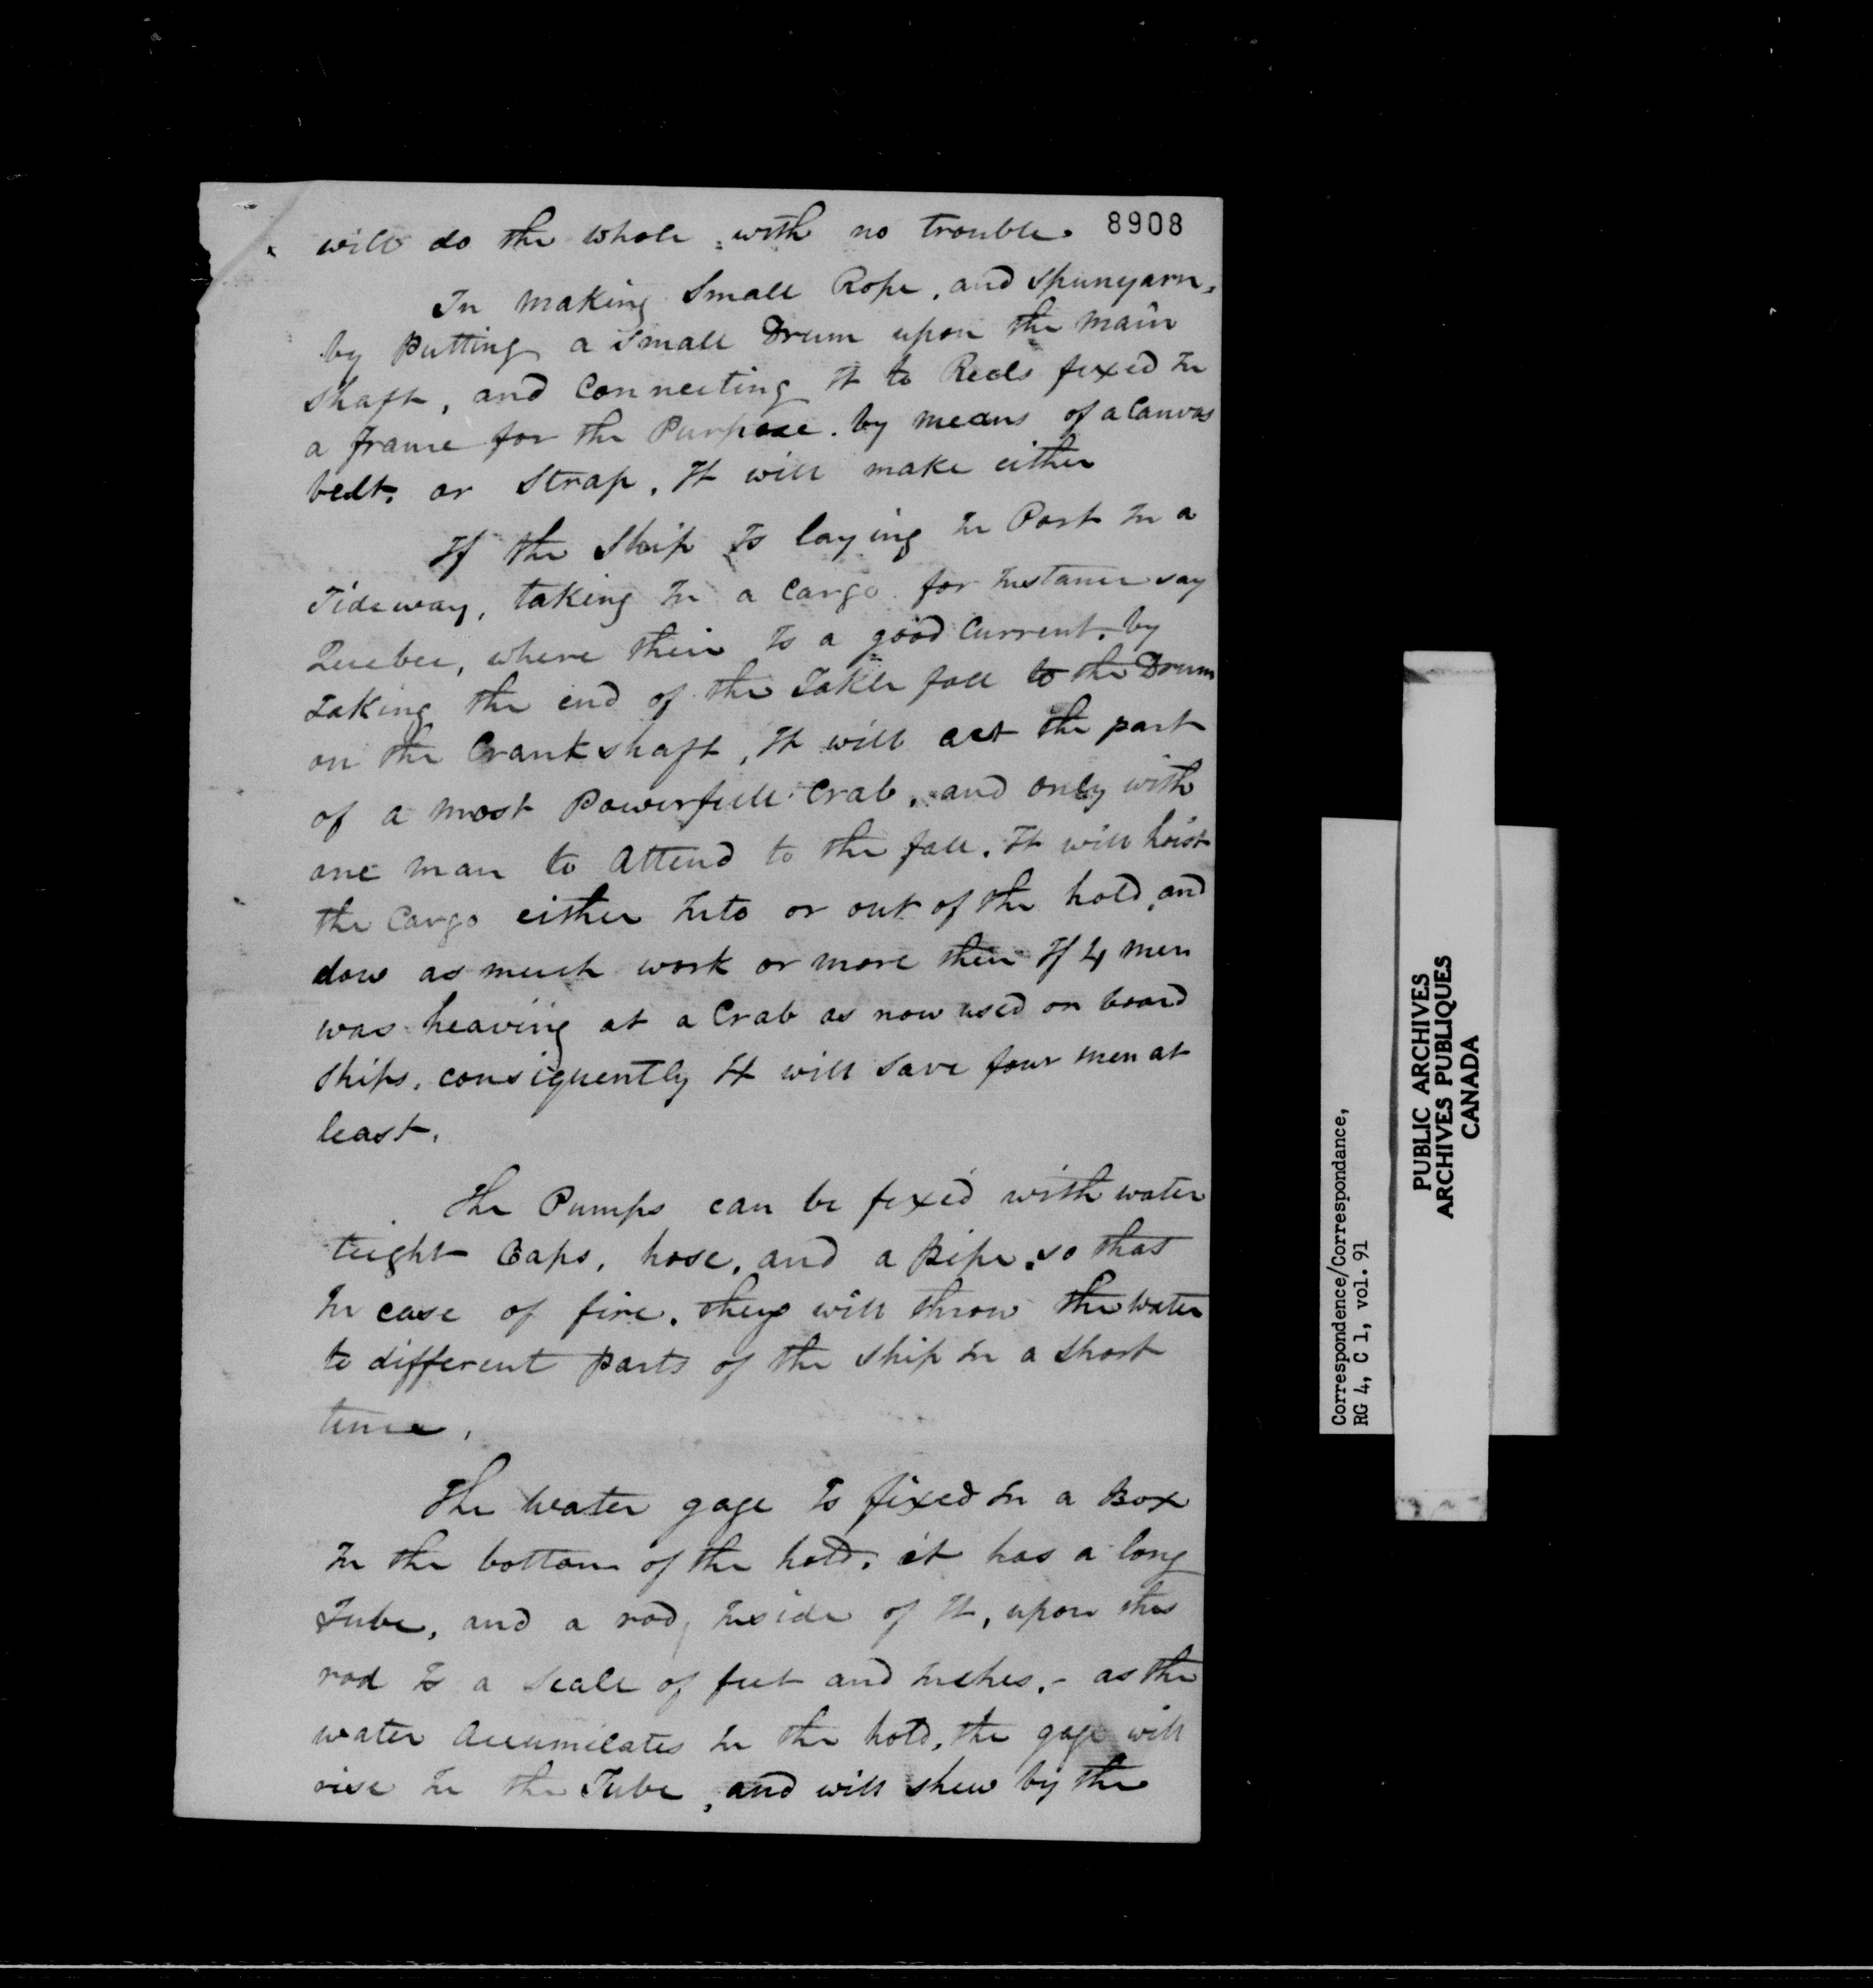 will do the whole, with no trouble. 8908
In making Small Rope, and Spunyarn,
by putting a small Drum upon the main
Shaft, and Connecting It to Reels fixed In
a frame for the Purpose. by means of a Canvas
belt, or Strap, It will make either
If the Ship Is laying In Port In a
Tideway, taking In a Cargo for Instance say
Quebec, where their Is a good Current. by
Taking the end of the Takle fall to the Drum
on the Crank shaft, It will act the part
of a most Powerfull Crab, and only with
one man to Attend to the fall. It will hoist
the Cargo either Into or out of the hold, and
dow as much work or more then If 4 men
was heaving at a Crab as now used on board
Ships, consiquently It will save four men at
least.
The Pumps can be fixed with water
tight Caps, hose, and a pipe, so that
In case of fire. they will throw the water
to different parts of the ship In a short
time.
The water gage Is fixed In a Box
In the bottom of the hold. it has a long
Tube, and a rod, Inside of It, upon this
rod Is a Scale of feet and Inches. - as the
water Accumilates In the hold, the gage will
rise In the Tube, and will shew by the
Correspondence/Correspondance,
RG 4, C 1, vol. 91
PUBLIC ARCHIVES
ARCHIVES PUBLIQUES
CANADA